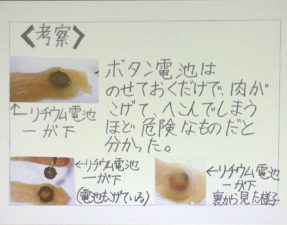 〈考察〉
ボタン電池は
のせておくだけで、肉が
こげて、へこんでしまう
ほど危険なものだと
分かった。
↑リチウム電池
ーが下
←リチウム電池
ーが下
(電池もげている)
←リチウム電池
ーが下
裏から見た様子